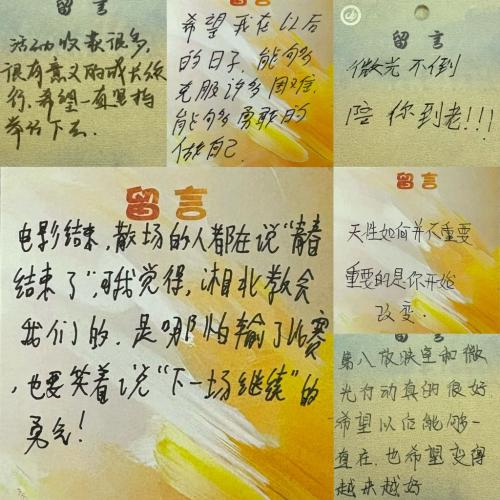 留言
活动收获很多,
很有意义的成长旅
行.希望一直坚持
举行下去.
希望我在以后
的日子,能够
克服许多困难.
能够勇敢的
做自己.
留言
微光不倒
陪你到老!!!
留言
电影结束,散场的人都在说“青春
结束了”,可我觉得,湘北教会
我们的,是哪怕输了比赛
,也要笑着说“下一场继续”的
勇气!
留言
天性如何并不重要
重要的是你开始
改变.
第八放映室和微
光行动真的很好,
希望以后能够一
直在.也希望变得
越来越好